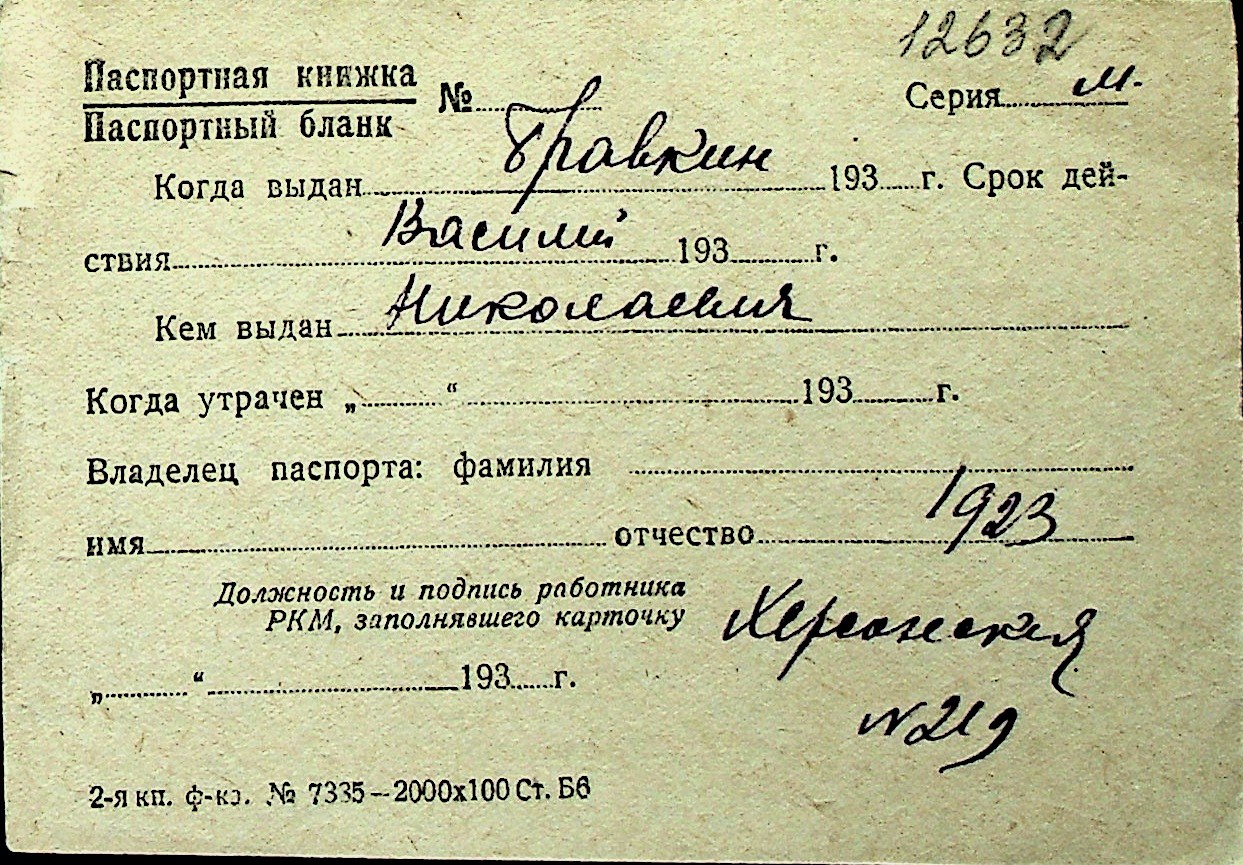 12632
Паспортная книжка
Паспортный бланк
№ Серия М.
Гравкин
Когда выдан 193 г. Срок дей-
Василий
ствия 193 г.
Николаевич
Кем выдан
Когда утрачен „ “ 193 г.
Владелец паспорта: фамилия
1923
имя отчество
Должность и подпись работника
РКМ, заполнявшего карточку
Херсонская
„ “ 193 г.
N 219
2-я кп. ф-ка. № 7335—2000х100 Ст. Б6